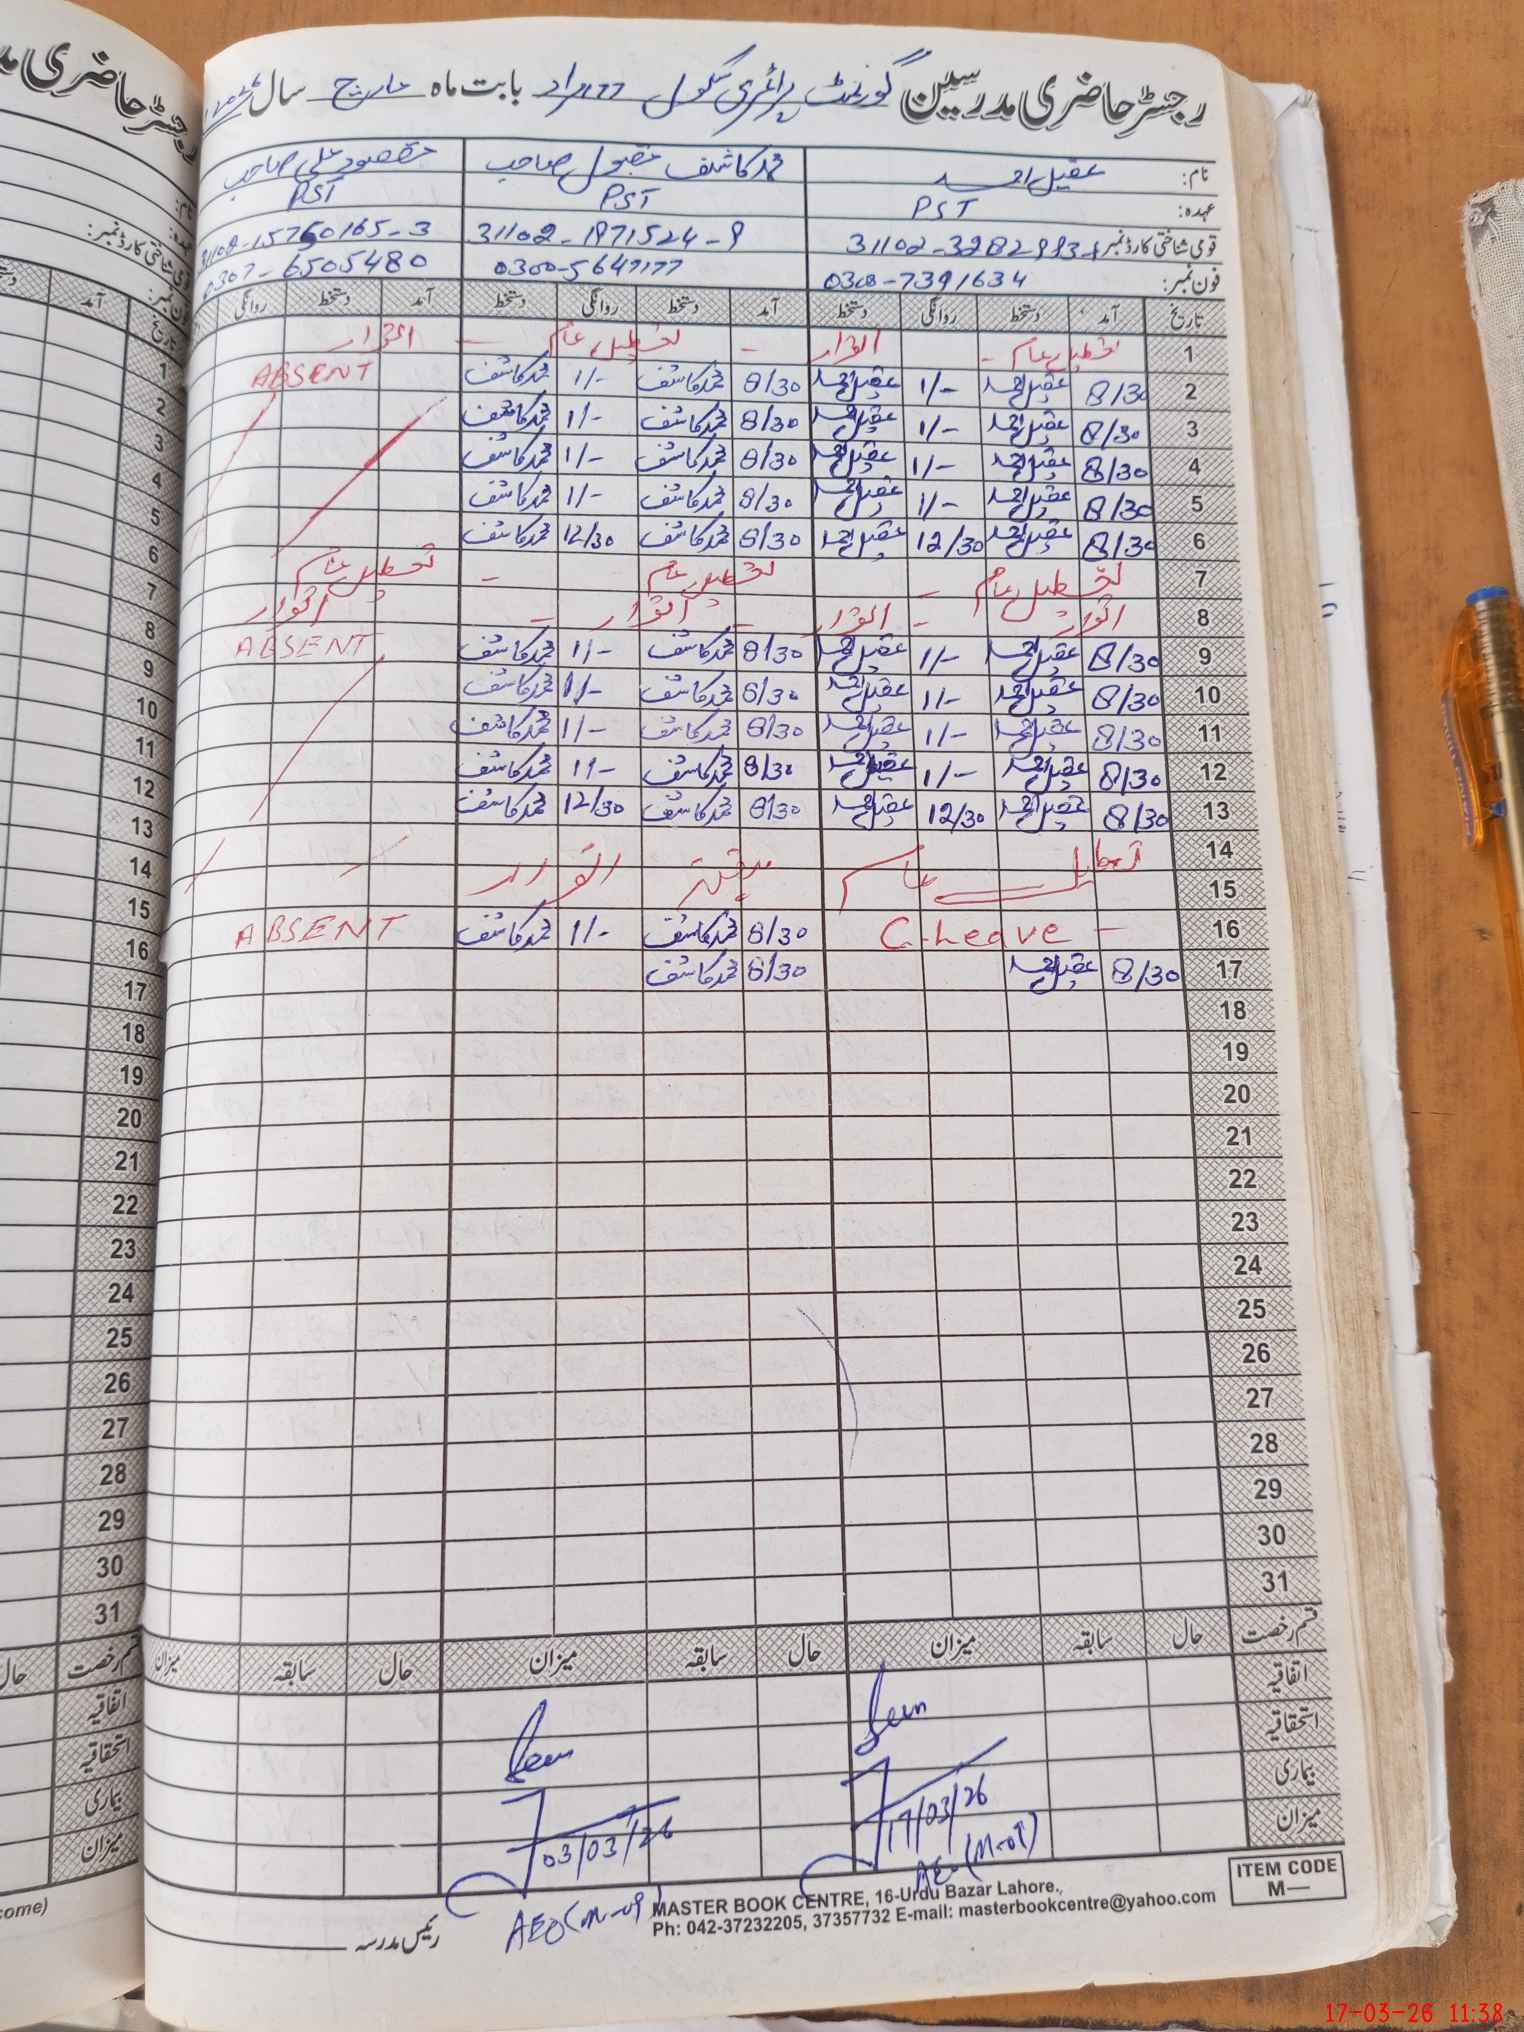 رجسٹر حاضری مدرسین گورنمنٹ پرائمری سکول بابت ماہ مارچ سال
نام: عقیل احمد محمد کاشف مقبول صاحب مقصود علی صاحب
عہدہ: PST PST PST
قومی شناختی کارڈ نمبر: 31102-1971524-9 31102-15750165-3
فون نمبر: 0308-7391634 0300-5647177 0307-6505480
تاریخ آمد دستخط روانگی دستخط آمد دستخط روانگی دستخط آمد دستخط روانگی
1 تعطیل عام - اتوار - تعطیل عام - اتوار
2 8/30 عقیل احمد 1/- عقیل احمد 8/30 محمد کاشف 1/- محمد کاشف ABSENT
3 8/30 عقیل احمد 1/- عقیل احمد 8/30 محمد کاشف 1/- محمد کاشف
4 8/30 عقیل احمد 1/- عقیل احمد 8/30 محمد کاشف 1/- محمد کاشف
5 8/30 عقیل احمد 1/- عقیل احمد 8/30 محمد کاشف 1/- محمد کاشف
6 8/30 عقیل احمد 12/30 عقیل احمد 8/30 محمد کاشف 12/30 محمد کاشف
7 تعطیل عام - تعطیل عام - تعطیل عام
8 اتوار - اتوار - اتوار - اتوار
9 8/30 عقیل احمد 1/- عقیل احمد 8/30 محمد کاشف 1/- محمد کاشف ABSENT
10 8/30 عقیل احمد 1/- عقیل احمد 8/30 محمد کاشف 1/- محمد کاشف
11 8/30 عقیل احمد 1/- عقیل احمد 8/30 محمد کاشف 1/- محمد کاشف
12 8/30 عقیل احمد 1/- عقیل احمد 8/30 محمد کاشف 1/- محمد کاشف
13 8/30 عقیل احمد 12/30 عقیل احمد 8/30 محمد کاشف 12/30 محمد کاشف
14 تعطیل عام ہفتہ اتوار
15
16 C.Leave - 8/30 محمد کاشف 1/- محمد کاشف ABSENT
17 8/30 عقیل احمد 8/30 محمد کاشف
18
19
20
21
22
23
24
25
26
27
28
29
30
31
قسم رخصت حال سابقہ میزان حال سابقہ میزان حال سابقہ میزان
اتفاقیہ
استحقاقیہ
بیماری
میزان
Seen Seen
17/03/26 03/03/26
رئیس مدرسہ
MASTER BOOK CENTRE, 16-Urdu Bazar Lahore.
Ph: 042-37232205, 37357732 E-mail: masterbookcentre@yahoo.com
ITEM CODE
M—
17-03-26 11:38
رجسٹر حاضری
1
2
3
4
5
6
7
8
9
10
11
12
13
14
15
16
17
18
19
20
21
22
23
24
25
26
27
28
29
30
31
قسم رخصت حال
اتفاقیہ
استحقاقیہ
بیماری
میزان